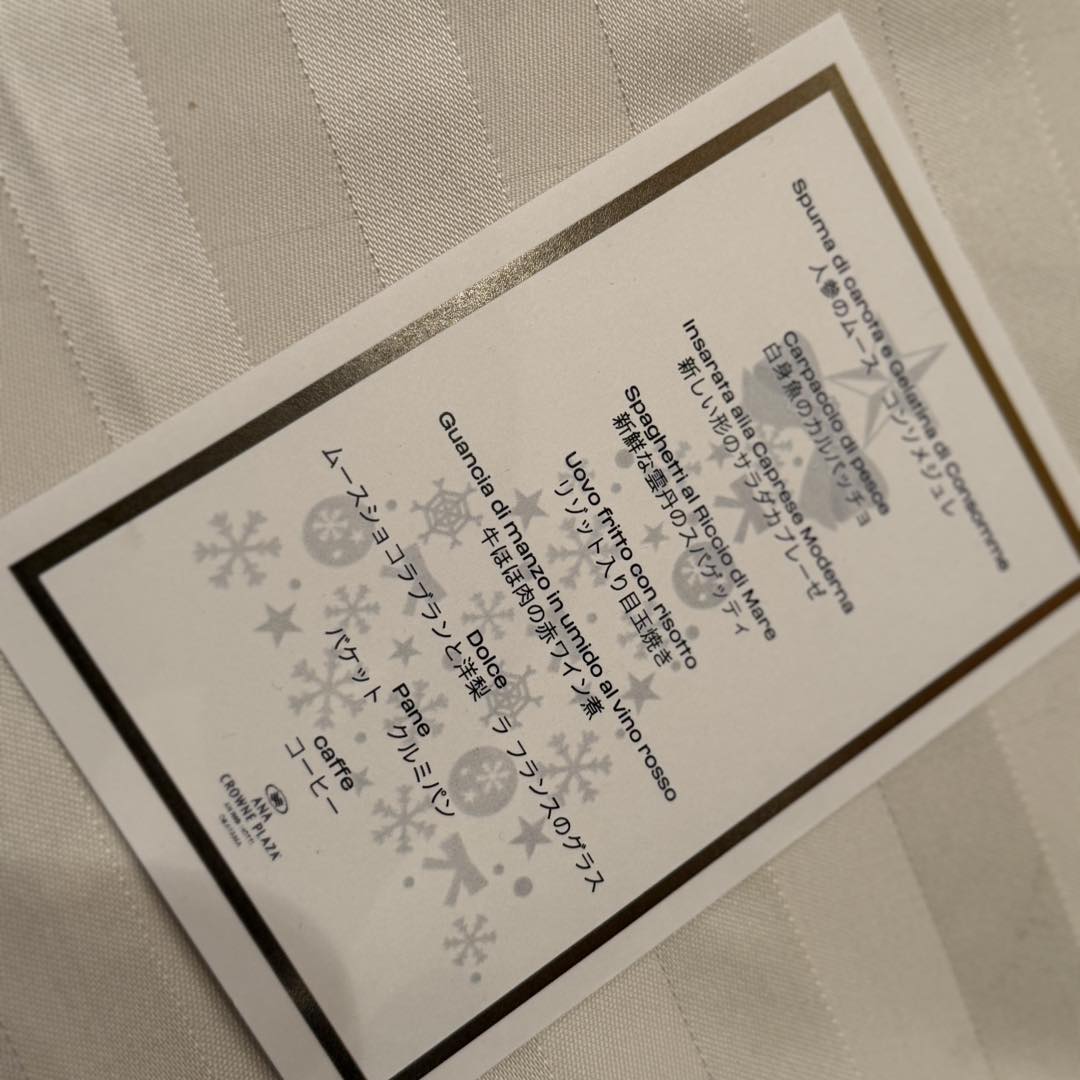 Spuma di carota e Gelatina di Consomme
人参のムース コンソメジュレ
Carpaccio di pesce
白身魚のカルパッチョ
Insarata alla Caprese Moderna
新しい形のサラダカプレーゼ
Spaghetti al Riccio di Mare
新鮮な雲丹のスパゲッティ
Uovo fritto con risotto
リゾット入り目玉焼き
Guancia di manzo in umido al vino rosso
牛ほほ肉の赤ワイン煮
Dolce
ムースショコラブランと洋梨 ラ フランスのグラス
Pane
バケット クルミパン
caffe
コーヒー
ANA
CROWNE PLAZA